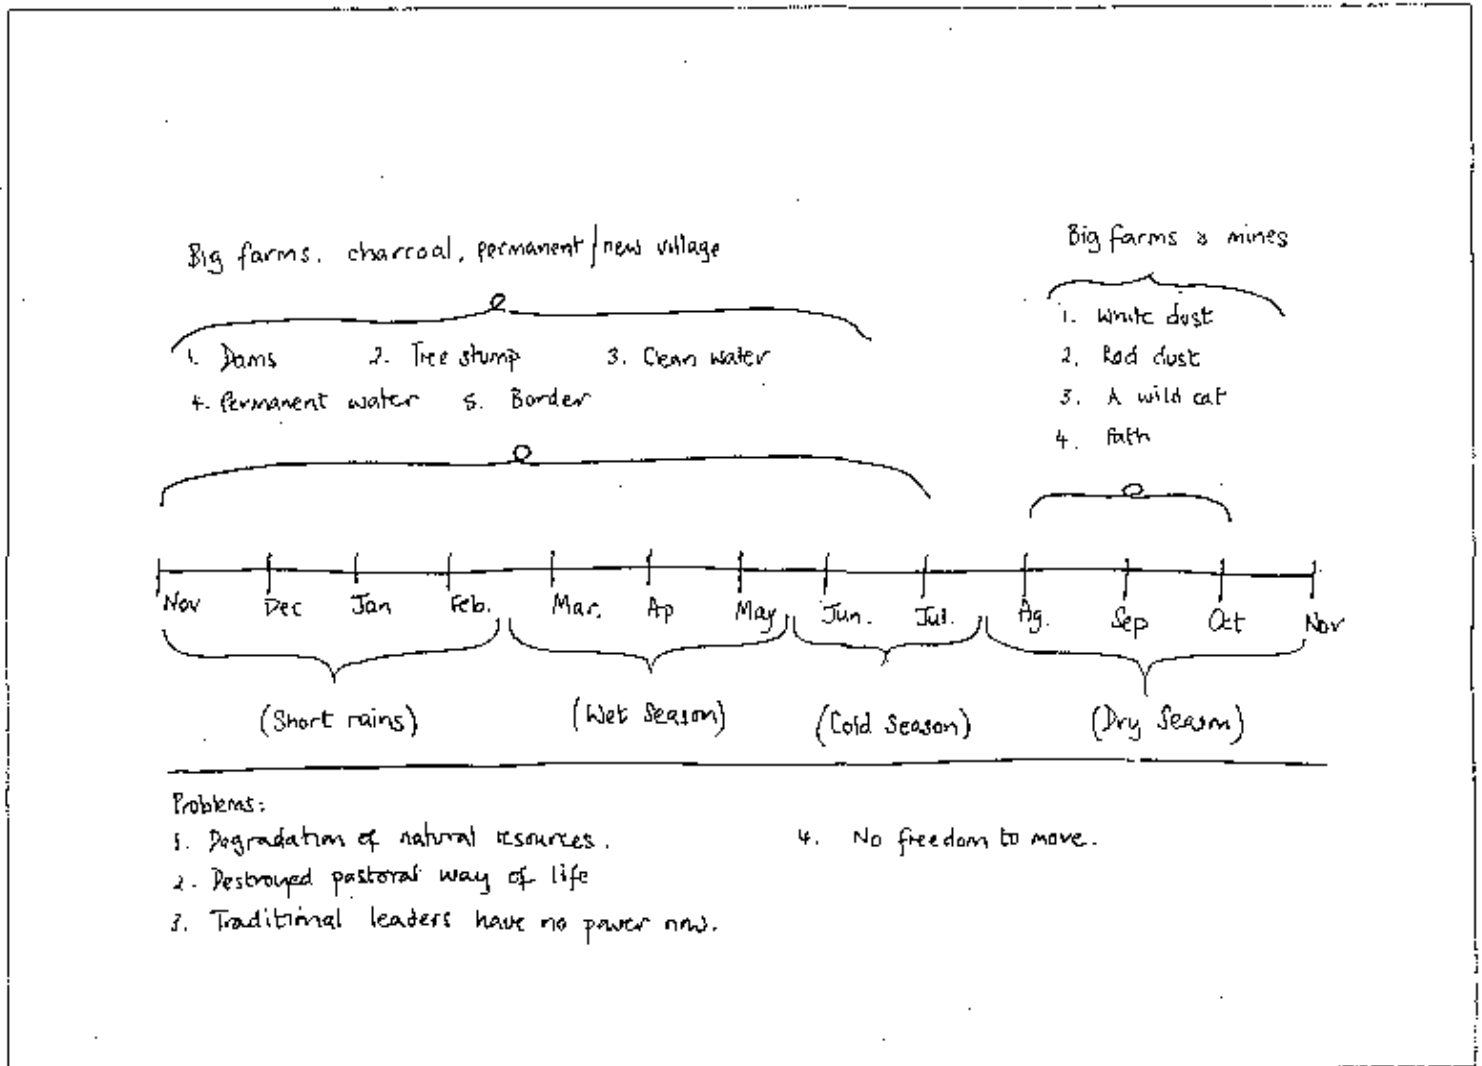 Big farms, charcoal, permanent/new village
1. Dams 2. Tree stump 3. Clean water
4. Permanent water 5. Border
Big farms & mines
1. White dust
2. Red dust
3. A wild cat
4. Path
Nov Dec Jan Feb. Mar. Ap May Jun. Jul. Ag. Sep Oct Nov
(Short rains) (Wet Season) (Cold Season) (Dry Season)
Problems:
1. Degradation of natural resources.
2. Destroyed pastoral way of life
3. Traditional leaders have no power now.
4. No freedom to move.